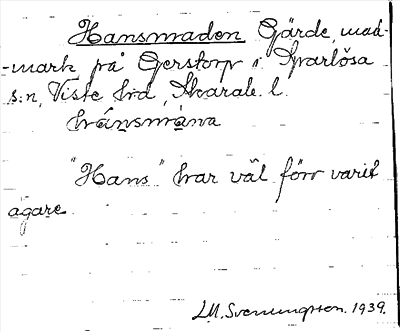 Hansmaden Gärde, mad-
-mark på Gerstorp i Kvarlösa
s:n, Viste hd, Skarab. l.
hánsmàna
"Hans" har väl förr varit
ägare
I.M. Svenungsson. 1939.